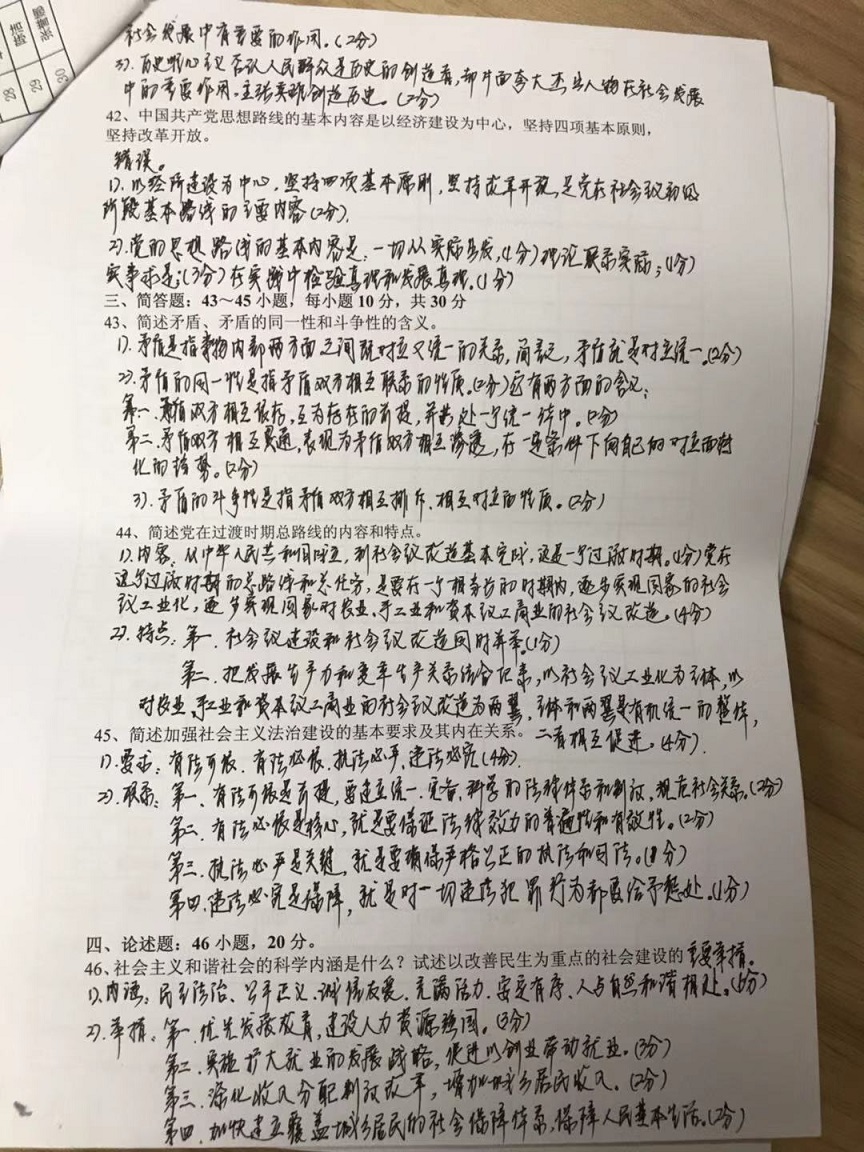 陈洁
28
29
30
社会发展中有重要的作用。(2分)
3). 历史唯心主义否认人民群众是历史的创造者,却片面夸大杰出人物在社会发展
中的重要作用,主张英雄创造历史。(2分)
42、中国共产党思想路线的基本内容是以经济建设为中心,坚持四项基本原则,
坚持改革开放。
错误。
1). 以经济建设为中心,坚持四项基本原则,坚持改革开放,是党在社会主义初级
阶段基本路线的主要内容(2分).
2). 党的思想路线的基本内容是:一切从实际出发,(1分)理论联系实际;(1分)
实事求是;(3分)在实践中检验真理和发展真理。(1分)
三、简答题:43~45小题,每小题10分,共30分
43、简述矛盾、矛盾的同一性和斗争性的含义。
1). 矛盾是指事物内部两方面之间既对立又统一的关系,简言之,矛盾就是对立统一。(2分)
2). 矛盾的同一性是指矛盾双方相互联系的性质。(2分)它有两方面的含义:
第一、矛盾双方相互依存,互为存在的前提,并共处一个统一体中。(2分)
第二、矛盾双方相互贯通,表现为矛盾双方相互渗透,在一定条件下向自己的对立面转
化的趋势。(2分)
3). 矛盾的斗争性是指矛盾双方相互排斥、相互对立的性质。(2分)
44、简述党在过渡时期总路线的内容和特点。
1). 内容:从中华人民共和国成立,到社会主义改造基本完成,这是一个过渡时期。(1分)党在
这个过渡时期的总路线和总任务,是要在一个相当长的时期内,逐步实现国家的社会
主义工业化,逐步实现国家对农业、手工业和资本主义工商业的社会主义改造。(4分)
2). 特点:第一、社会主义建设和社会主义改造同时并举。(1分)
第二、把发展生产力和变革生产关系结合起来,以社会主义工业化为主体,以
对农业、手工业和资本主义工商业的社会主义改造为两翼,主体和两翼是有机统一的整体,
二者相互促进。(4分).
45、简述加强社会主义法治建设的基本要求及其内在关系。
1). 要求:有法可依、有法必依、执法必严、违法必究(4分).
2). 联系:第一、有法可依是前提,要建立统一、完备、科学的法律体系和制度,规范社会关系。(2分)
第二、有法必依是核心,就是要保证法律效力的普遍性和有效性。(2分)
第三、执法必严是关键,就是要确保严格公正的执法和司法。(1分)
第四、违法必究是保障,就是对一切违法犯罪行为都要给予惩处。(1分)
四、论述题:46小题,20分。
46、社会主义和谐社会的科学内涵是什么?试述以改善民生为重点的社会建设的主要举措。
1). 内涵:民主法治、公平正义、诚信友爱、充满活力、安定有序、人与自然和谐相处。(6分)
2). 举措:第一、优先发展教育,建设人力资源强国。(3分)
第二、实施扩大就业的发展战略,促进以创业带动就业。(3分)
第三、深化收入分配制度改革,增加城乡居民收入。(2分)
第四、加快建立覆盖城乡居民的社会保障体系,保障人民基本生活。(2分)